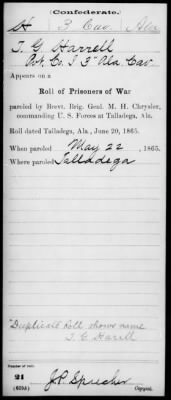 Confederate.
H 3 Cav Ala
T. G. Harrell
Pvt Co. I 3" Ala. Cav.
Appears on a
Roll of Prisoners of War
paroled by Brevt. Brig. Genl. M. H. Chrysler,
commanding U. S. Forces at Talladega, Ala.
Roll dated Talladega, Ala., June 20, 1865.
When paroled May 22, 1865.
Where paroled Talladega
"Duplicate Roll shows name
T. G. Harell
Number of roll:
21
J. P. Sprecher
(639A) Copyist.